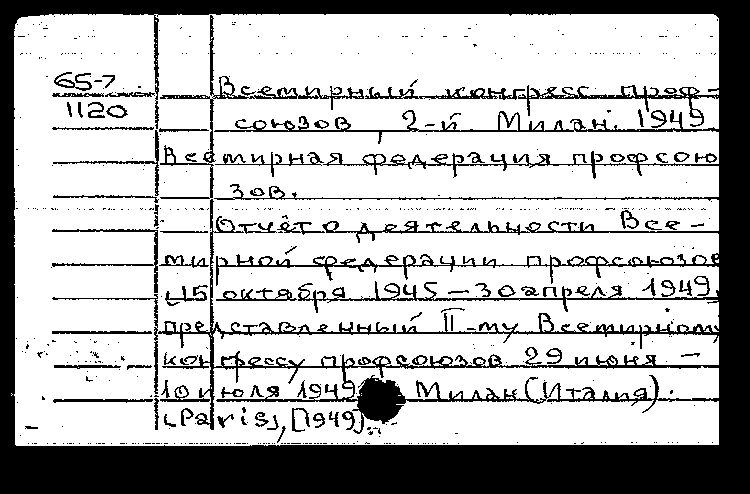 65-7
1120
Всемирный конгресс проф-
союзов, 2-й. Милан. 1949.
Всемирная федерация профсою
зов.
Отчёт о деятельности Все-
мирной федерации профсоюзов
[15 октября 1945 – 30 апреля 1949,
представленный II-му Всемирному
конгрессу профсоюзов 29 июня –
10 июля 1949 Милан (Италия).
[Paris], [1949].